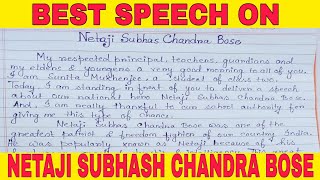 BEST SPEECH ON
Netaji Subhas Chandra Bose
My respected principal, teachers, guardians and
my elders & youngers a very good meaning to all of you.
I am Sunita Mukherjee, a student of class ten
Today, I am standing infront of you to deliver a speech
about our national hero Netaji Subhas Chandra Bose.
And, I am really thankful to our school authority for
giving me this type of chance.
Netaji Subhas chandra Bose was one of the
greatest patriot & freedom fighter of our country India.
He was popularly known as Netaji because of his
NETAJI SUBHASH CHANDRA BOSE